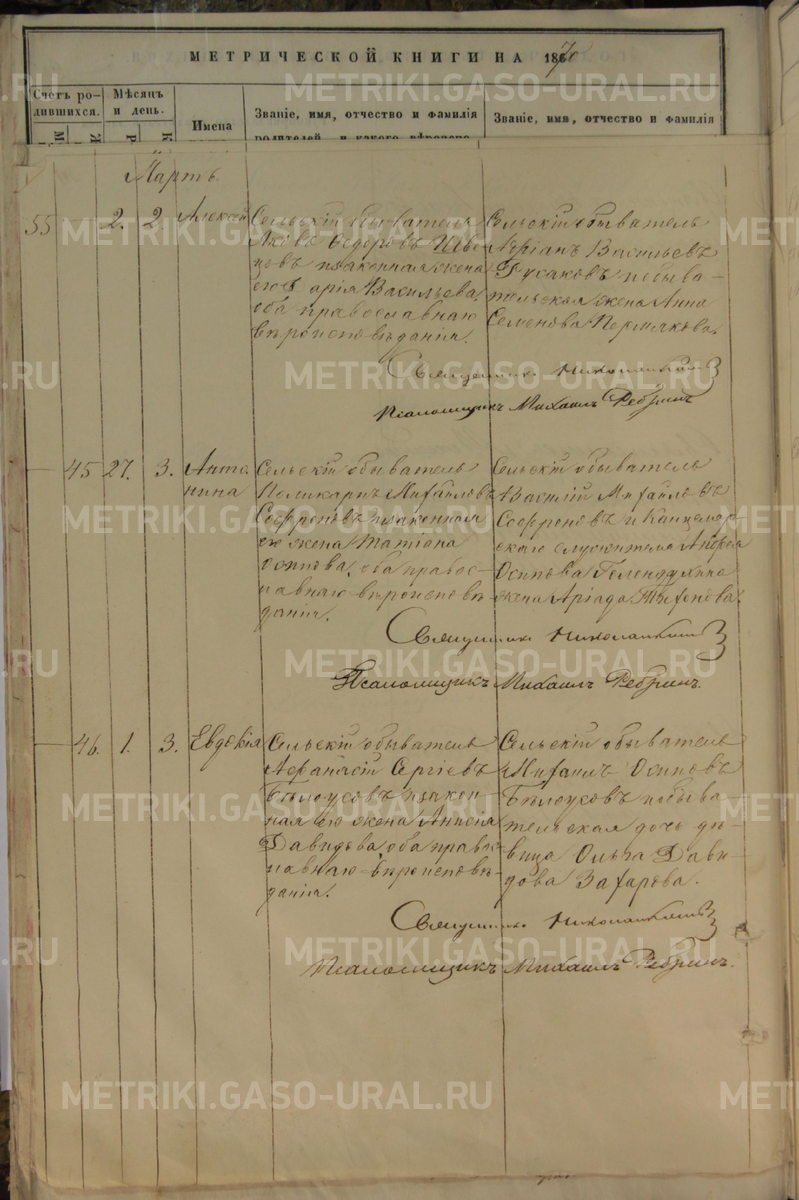 МЕТРИЧЕСКОЙ КНИГИ НА 1870
Счетъ ро-
дившихся.
Мѣсяцъ
и день.
Имена
Званіе, имя, отчество и фамилія
родителей, и какого вѣроиспо
Званіе, имя, отчество и фамилія
Мартъ
55 2. 2. Алексѣй
Сельскій обыватель
Яковъ Ѳедоровъ
его
арія Васильева
оба православнаго
вѣроисповѣданія.
Сельскій обыватель
Васильевъ
Русаковъ и обыва-
тельская жена Анна
Семенова Пермякова.
Священникъ Николай
Псаломщикъ Михаилъ Ребринъ
45 27. 3. Анто-
нина
Сельскій обыватель
Поликарпъ Михайловъ
Софроновъ и законная
его жена Татіана
Осипова, оба правос-
лавнаго вѣроисповѣ-
данія.
Сельскій обыватель
Василій Михайловъ
Софроновъ и Канцеляр-
скаго служителя Андрея
Осипова
жена
Священникъ
Псаломщикъ Михаилъ Ребринъ.
46. 1. 3. Евдокія
Сельскій обыватель
Аѳанасій Сергіевъ
Бѣлоусовъ и закон-
ная его жена Анисія
Давидова, оба правос-
лавнаго вѣроисповѣ-
данія.
Сельскій обыватель
Михаилъ Осиповъ
Бѣлоусовъ и обыва-
тельская дочь дѣ-
вица Ольга Дави-
дова Захарова.
Священникъ
Псаломщикъ Михаилъ Ребринъ.
METRIKI.GASO-URAL.RU